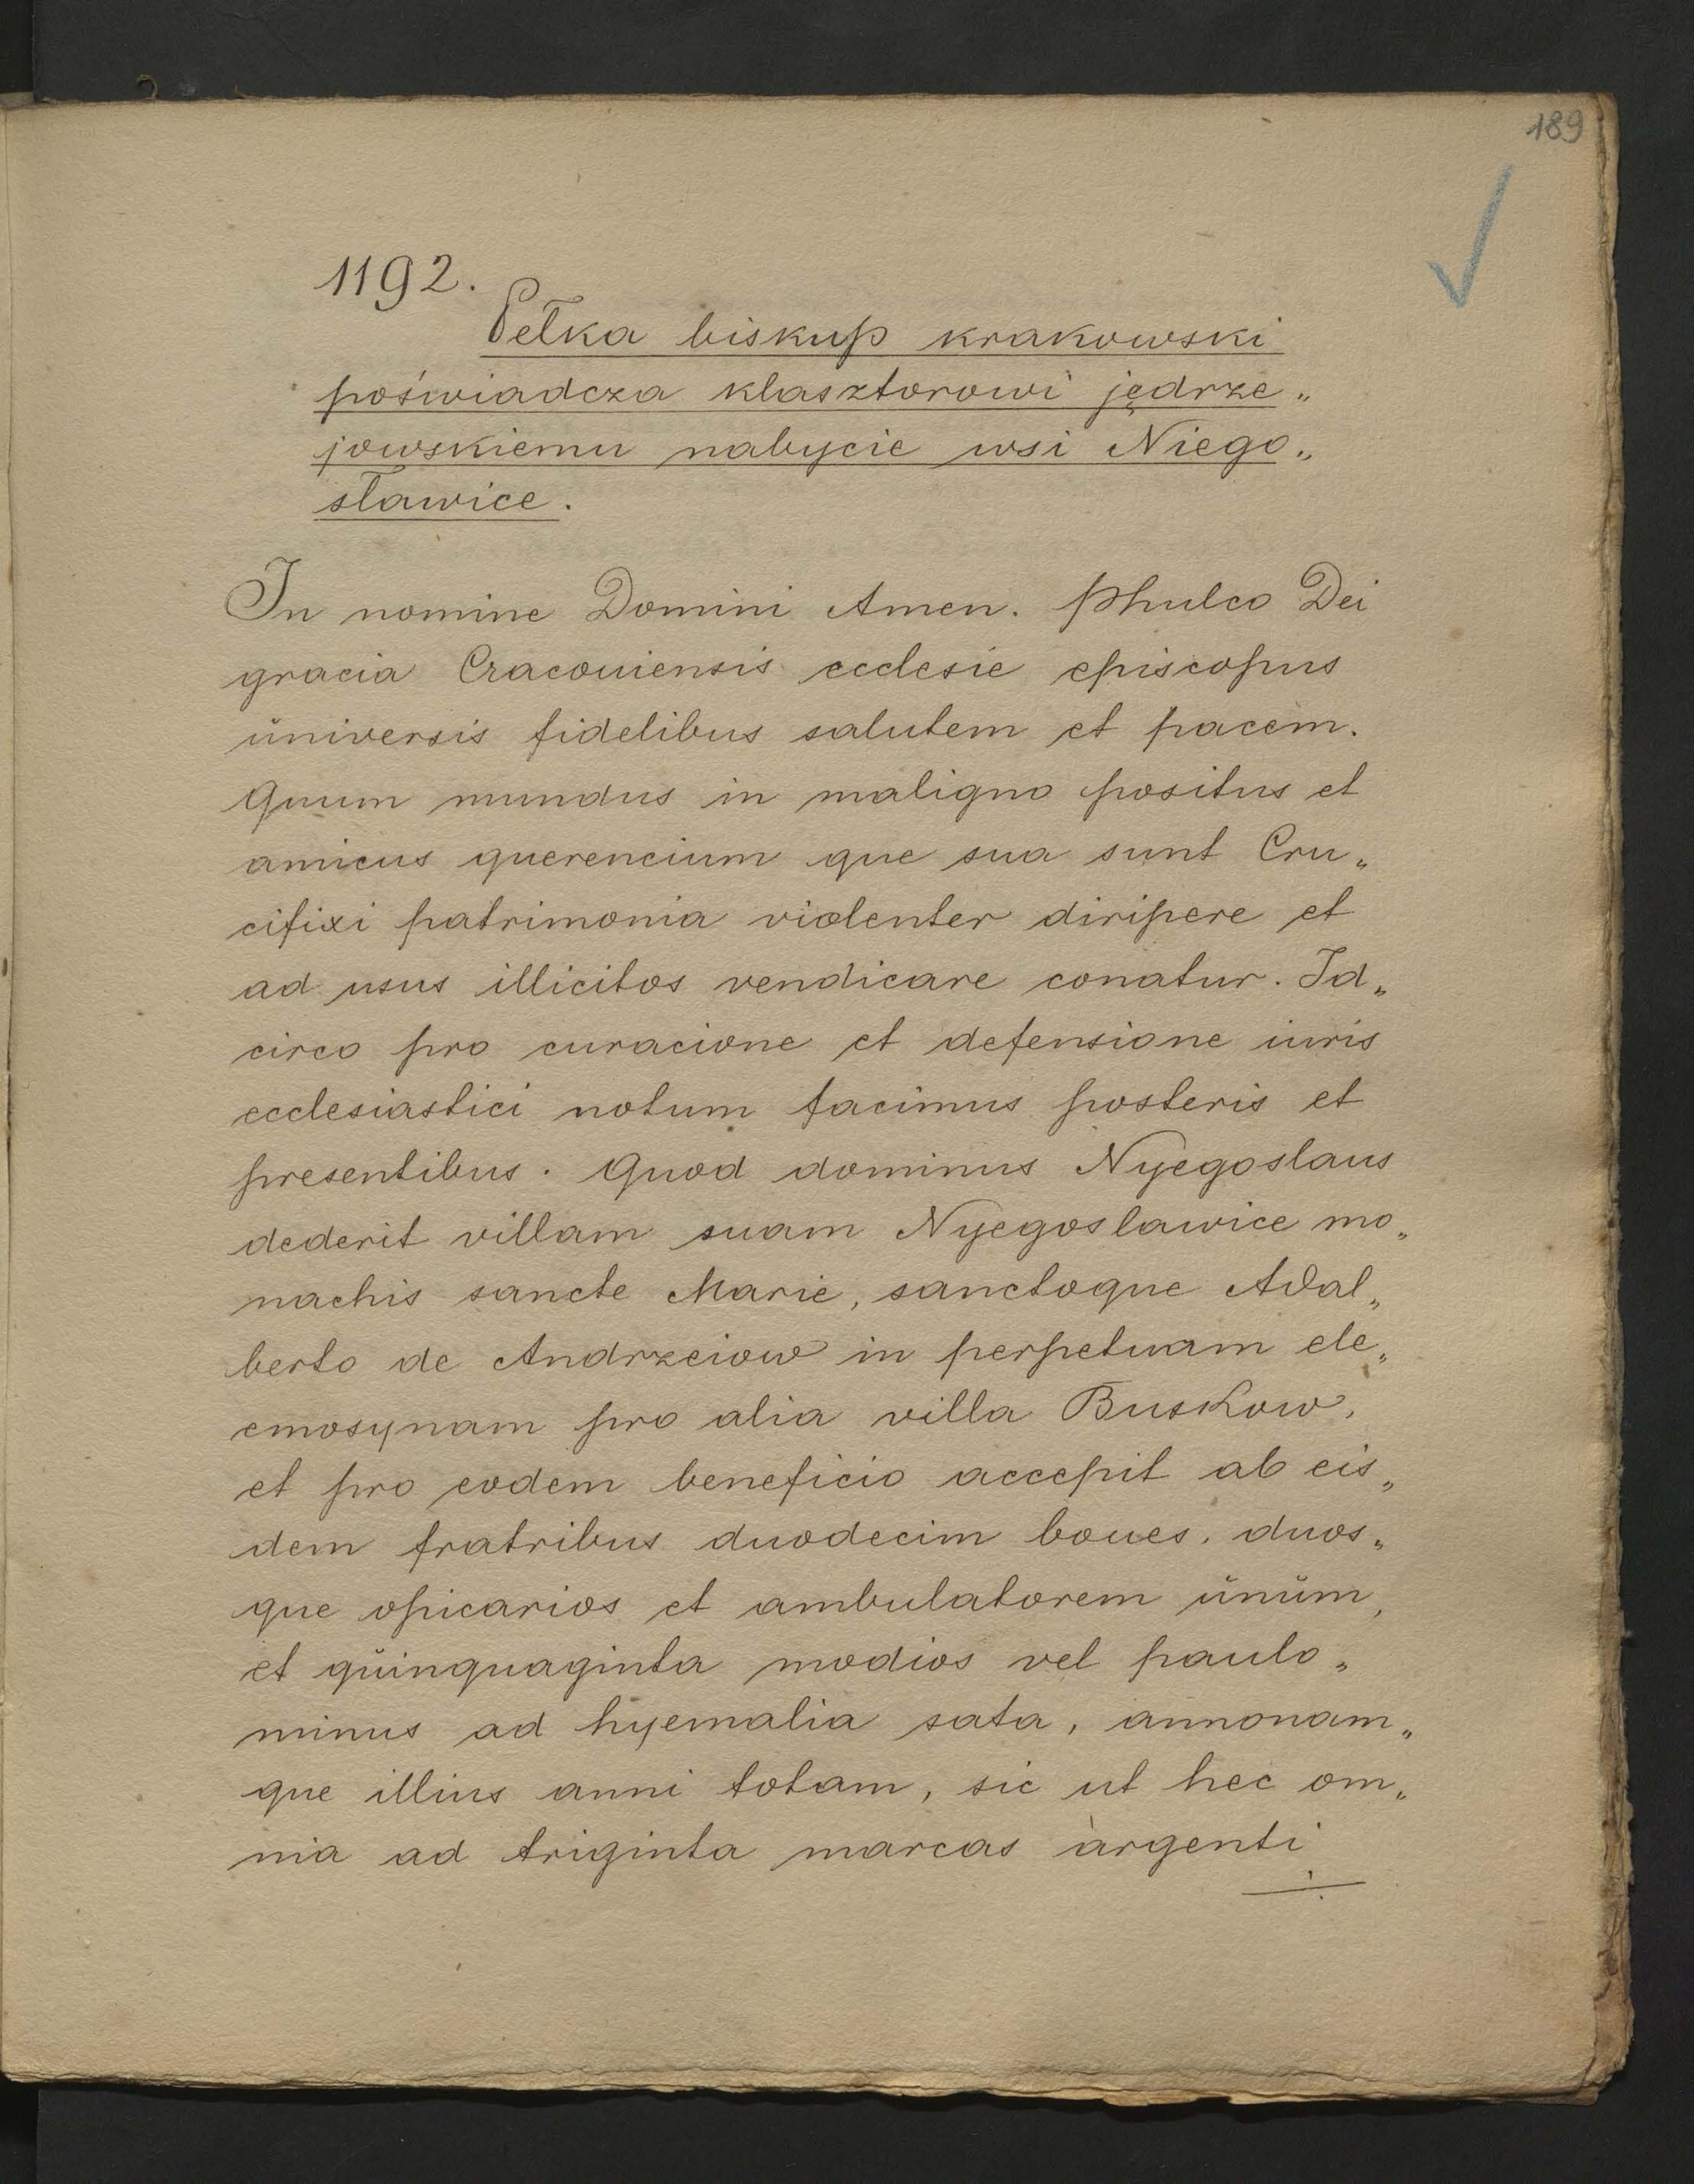 189
1192.
Pełka biskup krakowski
poświadcza klasztorowi jędrze„
jowskiemu nabycie wsi Niego„
sławice.
In nomine Domini Amen. Phulco Dei
gracia Cracouiensis ecclesie episcopus
ŭniversis fidelibus salutem et pacem.
Quum mundus in maligno positus et
amicus querencium que sua sunt Cru„
cifixi patrimonia violenter diripere et
ad usus illicitos vendicare conatur. Id„
circo pro curacione et defensione iuris
ecclesiastici notum facimus posteris et
presentibus. Quod dominus Nyegoslaus
dederit villam suam Nyegoslawice mo„
nachis sancte Marie, sanctoque Adal„
berto de Andrzeiow in perpetuam ele„
emosynam pro alia villa Buskow,
et pro eodem beneficio accepit ab eis„
dem fratribus duodecim boues, duos„
que opicarios et ambulatorem ŭnŭm,
et qŭinquaginta modios vel paulo„
minus ad hyemalia sata, annonam„
que illius anni totam, sic ut hec om„
nia ad triginta marcas argenti